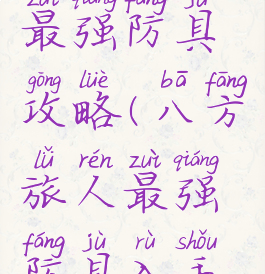 zuì qiáng fáng jù
最强防具
gōng lüè bā fāng
攻略(八方
lǚ rén zuì qiáng
旅人最强
fáng jù rù shǒu
防具入手